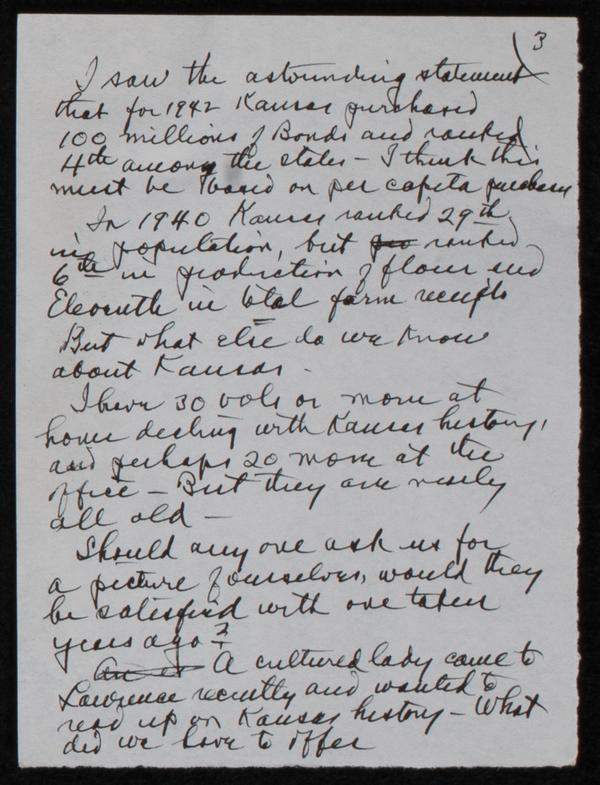 3
I saw the astounding statement
that for 1942 Kansas purchased
100 millions of Bonds and ranked
4th among the states - I think this
must be based on per capita purchases
In 1940 Kansas ranked 29th
in population, but pro ranked
6th in production of flour and
Eleventh in total farm receipts
But what else do we know
about Kansas -
I have 30 vols or more at
home dealing with Kansas history,
and perhaps 20 more at the
office - But they are nearly
all old -
Should any one ask us for
a picture of ourselves, would they
be satisfied with one taken
years ago?
A cultured lady came to
Lawrence recently and wanted to
read up on Kansas history - What
did we have to offer